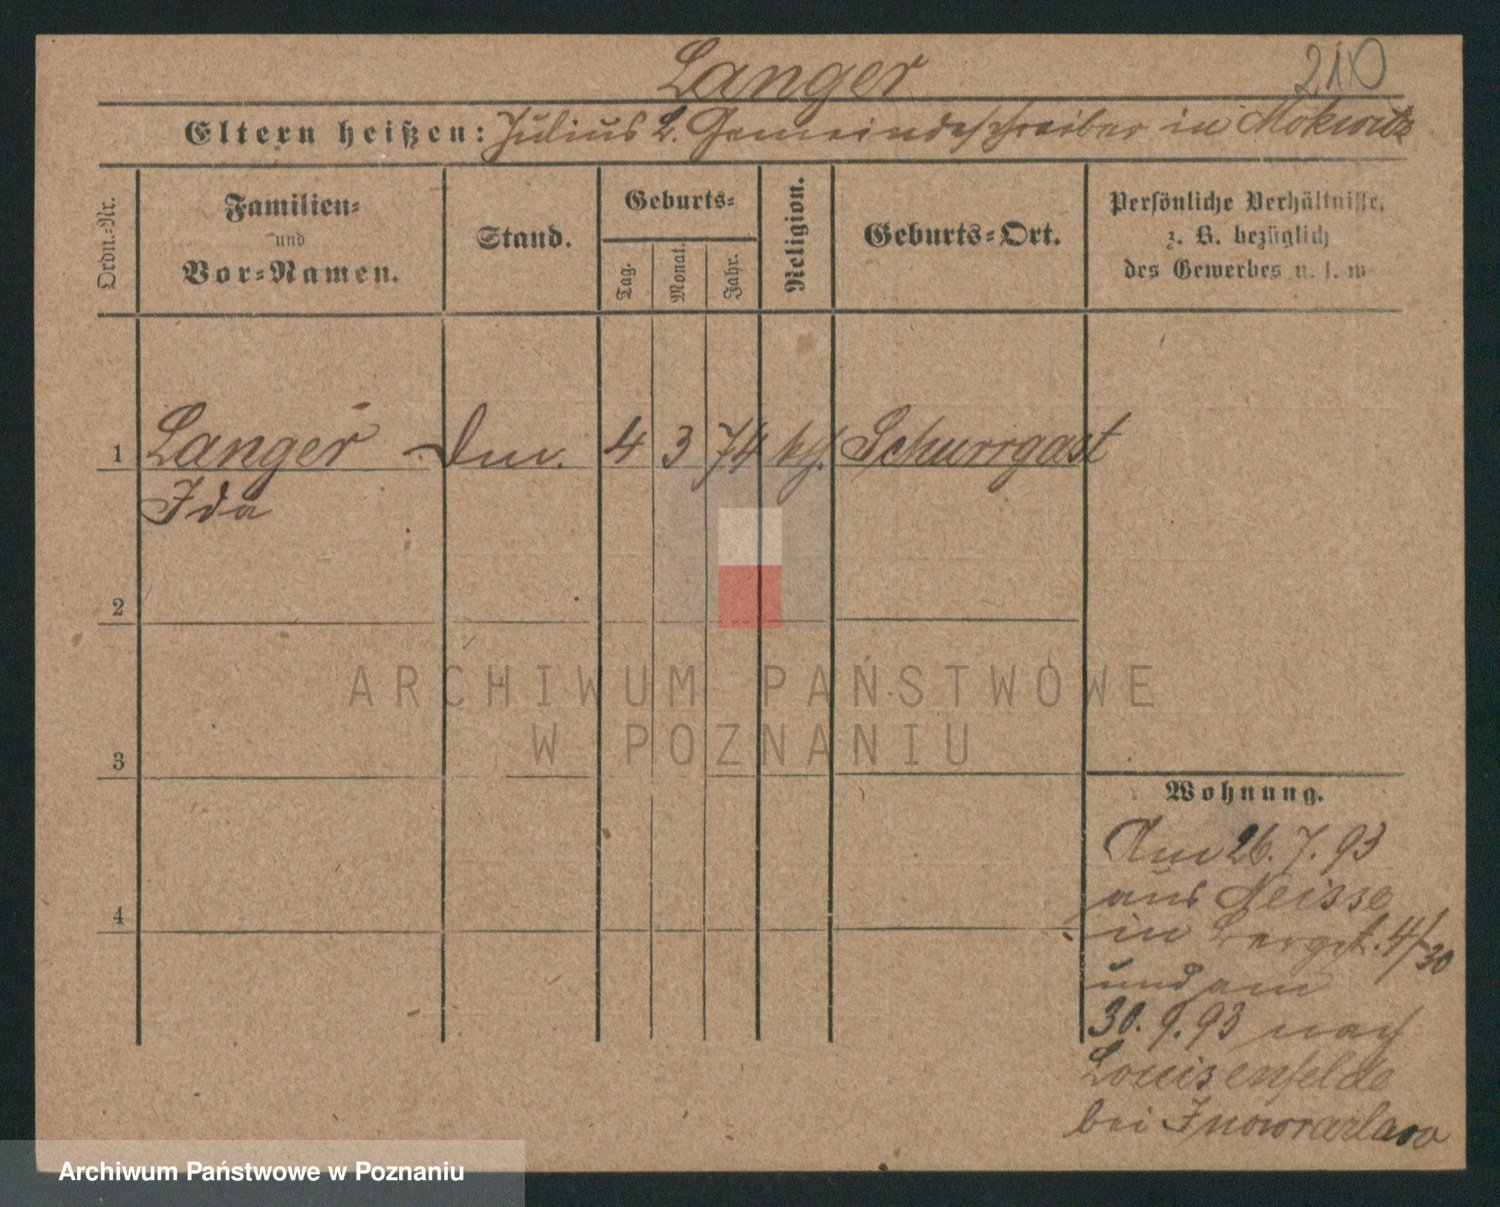 Langer
210
Eltern heißen: Julius L. Gemeindeschreiber in Mokwitz
Ordn.-Nr.
Familien-
und
Vor-Namen.
Stand.
Geburts-
Tag.
Monat.
Jahr.
Religion.
Geburts-Ort.
Persönliche Verhältnisse,
z. B. bezüglich
des Gewerbes u. s. w
1 Langer 4 3 74 kh. Schurrgast
Ida
2
3
4
ARCHIWUM PAŃSTWOWE
W POZNANIU
Wohnung.
Am 26. 7. 93
aus Neisse
in Bergst. 4/30
und am
30. 9. 93 nach
Louisenfelde
bei Inowrazlaw
Archiwum Państwowe w Poznaniu